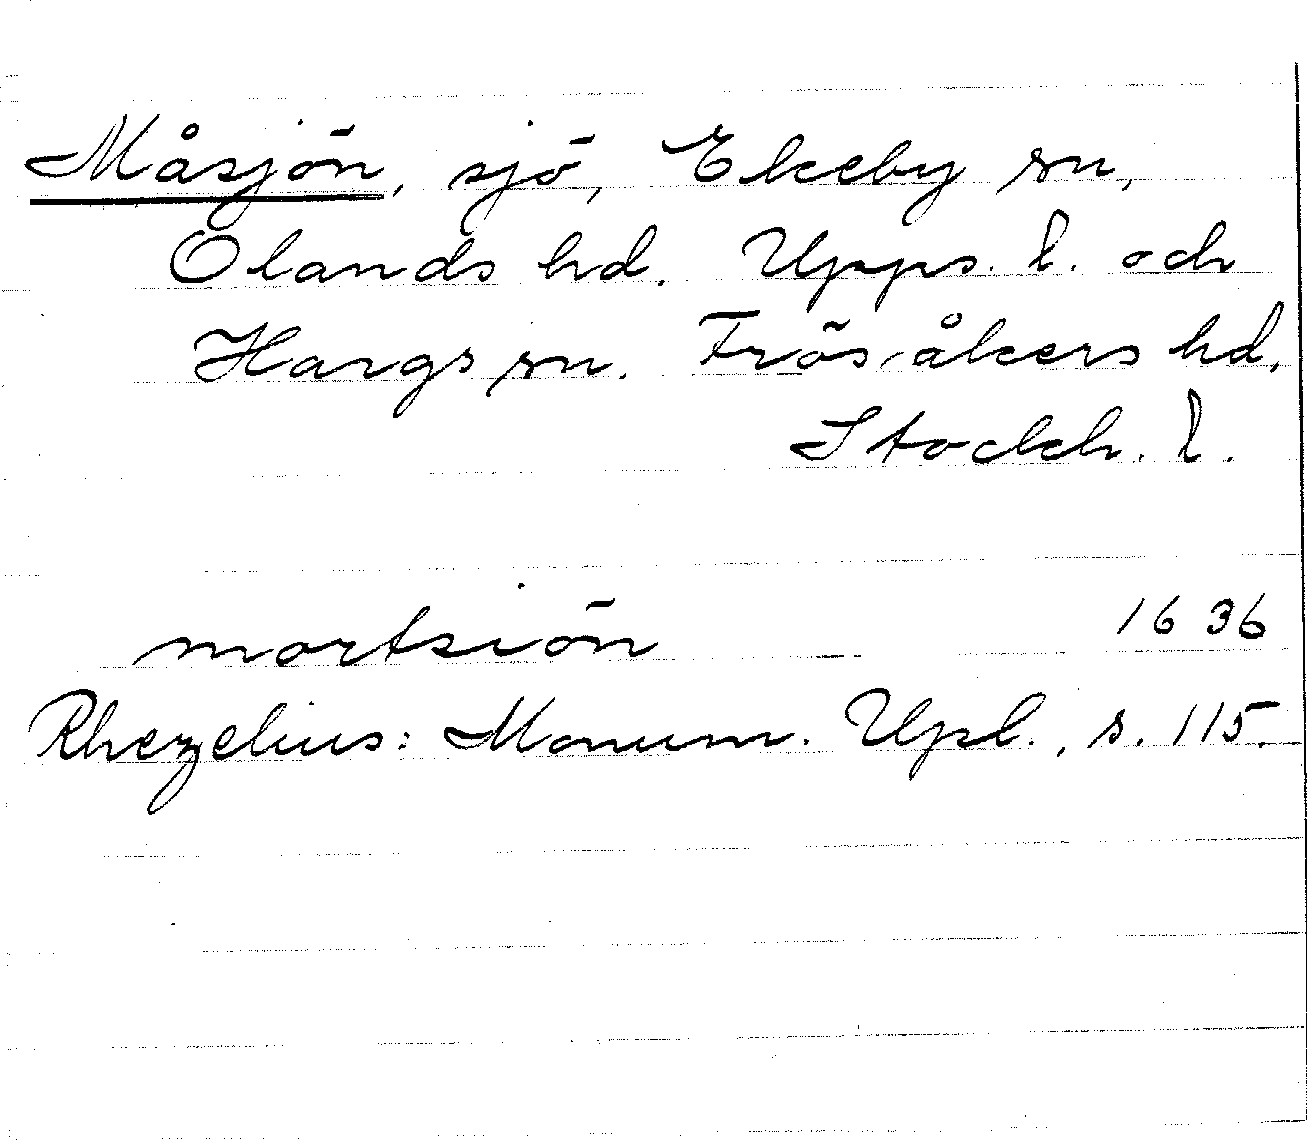 Måsjön, sjö, Ekeby sn,
Olands hd. Upps. l. och
Hargs sn. Frösåkers hd,
Stockh. l.
mortsiön 1636
Rhezelius: Monum. Upl., s. 115.